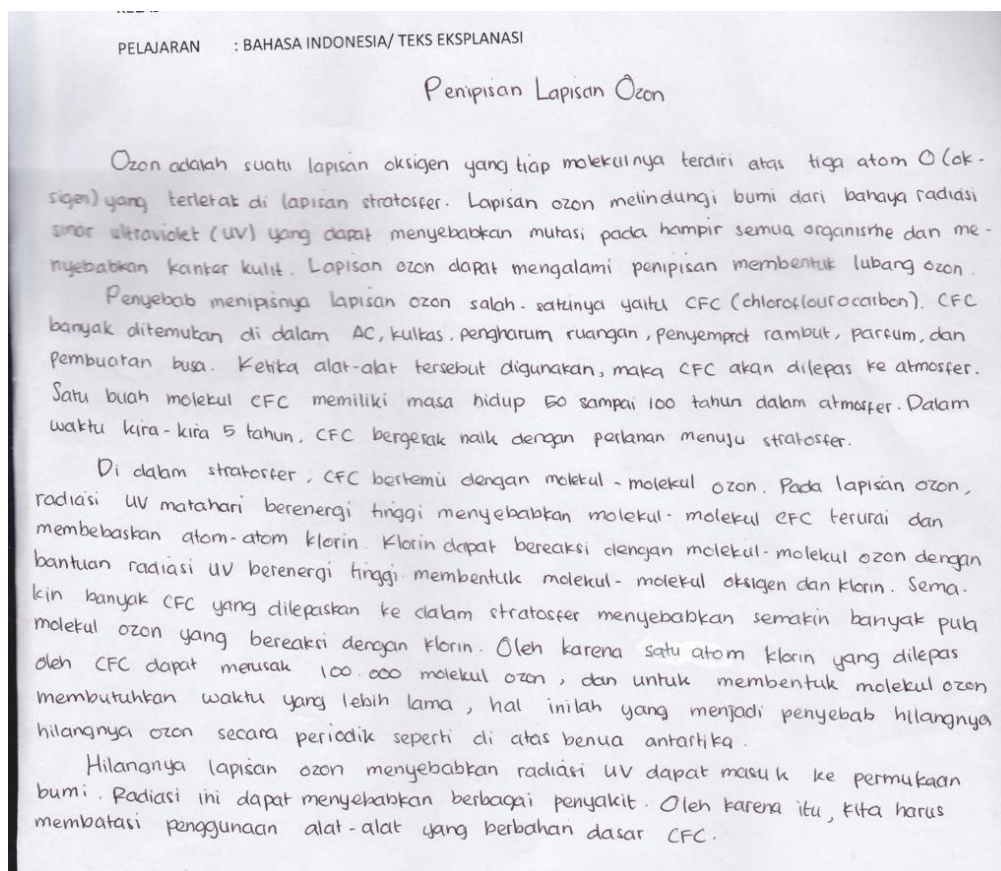 PELAJARAN : BAHASA INDONESIA/ TEKS EKSPLANASI
Penipisan Lapisan Ozon
Ozon adalah suatu lapisan oksigen yang tiap molekulnya terdiri atas tiga atom O (ok-
sigen) yang terletak di lapisan stratosfer. Lapisan ozon melindungi bumi dari bahaya radiasi
sinar ultraviolet (UV) yang dapat menyebabkan mutasi pada hampir semua organisme dan me-
nyebabkan kanker kulit. Lapisan ozon dapat mengalami penipisan membentuk lubang ozon.
Penyebab menipisnya lapisan ozon salah-satunya yaitu CFC (chloroflourocarbon). CFC
banyak ditemukan di dalam AC, kulkas, pengharum ruangan, penyemprot rambut, parfum, dan
pembuatan busa. Ketika alat-alat tersebut digunakan, maka CFC akan dilepas ke atmosfer.
Satu buah molekul CFC memiliki masa hidup 50 sampai 100 tahun dalam atmosfer. Dalam
waktu kira-kira 5 tahun, CFC bergerak naik dengan perlanan menuju stratosfer.
Di dalam stratosfer, CFC bertemu dengan molekul-molekul ozon. Pada lapisan ozon,
radiasi UV matahari berenergi tinggi menyebabkan molekul-molekul CFC terurai dan
membebaskan atom-atom klorin. Klorin dapat bereaksi dengan molekul-molekul ozon dengan
bantuan radiasi UV berenergi tinggi membentuk molekul-molekul oksigen dan klorin. Sema-
kin banyak CFC yang dilepaskan ke dalam stratosfer menyebabkan semakin banyak pula
molekul ozon yang bereaksi dengan klorin. Oleh karena satu atom klorin yang dilepas
oleh CFC dapat merusak 100.000 molekul ozon, dan untuk membentuk molekul ozon
membutuhkan waktu yang lebih lama, hal inilah yang menjadi penyebab hilangnya
hilangnya ozon secara periodik seperti di atas benua antartika.
Hilangnya lapisan ozon menyebabkan radiasi UV dapat masuk ke permukaan
bumi. Radiasi ini dapat menyebabkan berbagai penyakit. Oleh karena itu, kita harus
membatasi penggunaan alat-alat yang berbahan dasar CFC.